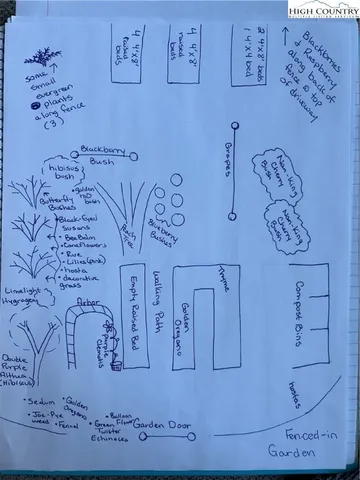 HIGH COUNTRY
MULTIPLE LISTING SERVICE
Blackberries
& Raspberry
along back of
fence @ top
of driveway
2 4'x8' beds
1 4'x4' bed
4 4'x8'
raised
beds
4 4'x8'
raised
beds
Same
small
evergreen
plants
along fence
(3)
Blackberry
Bush
Grapes
Nan-King
Cherry
Bush
Nan-King
Cherry
Bush
hibiscus
bush
Butterfly
Bushes
golden
bush
Black-Eyed
Susans
Bee Balm
Coneflowers
Rue
Lilies (pink)
hosta
decorative
grass
Peach
Blueberry
Bushes
Limelight
Hydrangea
Arbor
purple
clematis
Empty Raised Bed
Walking Path
Golden
Oregano
Thyme
Compost Bins
hostas
Double
Purple
Althea
(Hibiscus)
• Sedum
• Joe-Pye
weed
• Golden
Oregano
• Fennel
• Balloon
Flower
• Green
Twister
Echinacea
Garden Door
Fenced-in
Garden